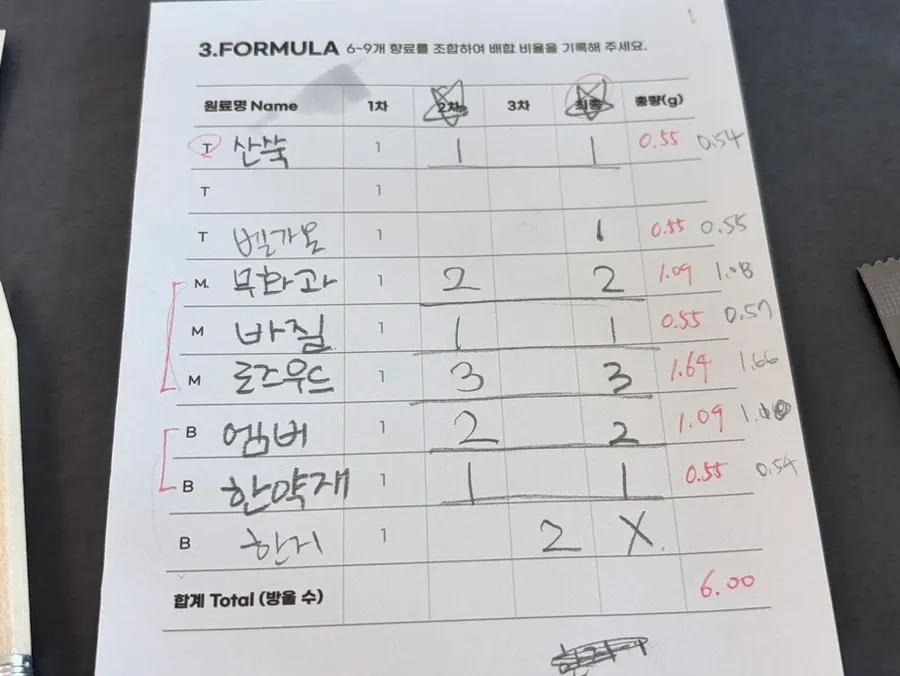 3.FORMULA 6~9개 향료를 조합하여 배합 비율을 기록해 주세요.
원료명 Name 1차 2차 3차 최종 총량(g)
T 산쑥 1 1 1 0.55 0.54
T 1
T 벨가못 1 1 0.55 0.55
M 무화과 1 2 2 1.09 1.08
M 바질 1 1 1 0.55 0.57
M 로즈우드 1 3 3 1.64 1.66
B 엠버 1 2 2 1.09
B 한약재 1 1 1 0.55 0.54
B 한지 1 2 X
합계 Total (방울 수) 6.00